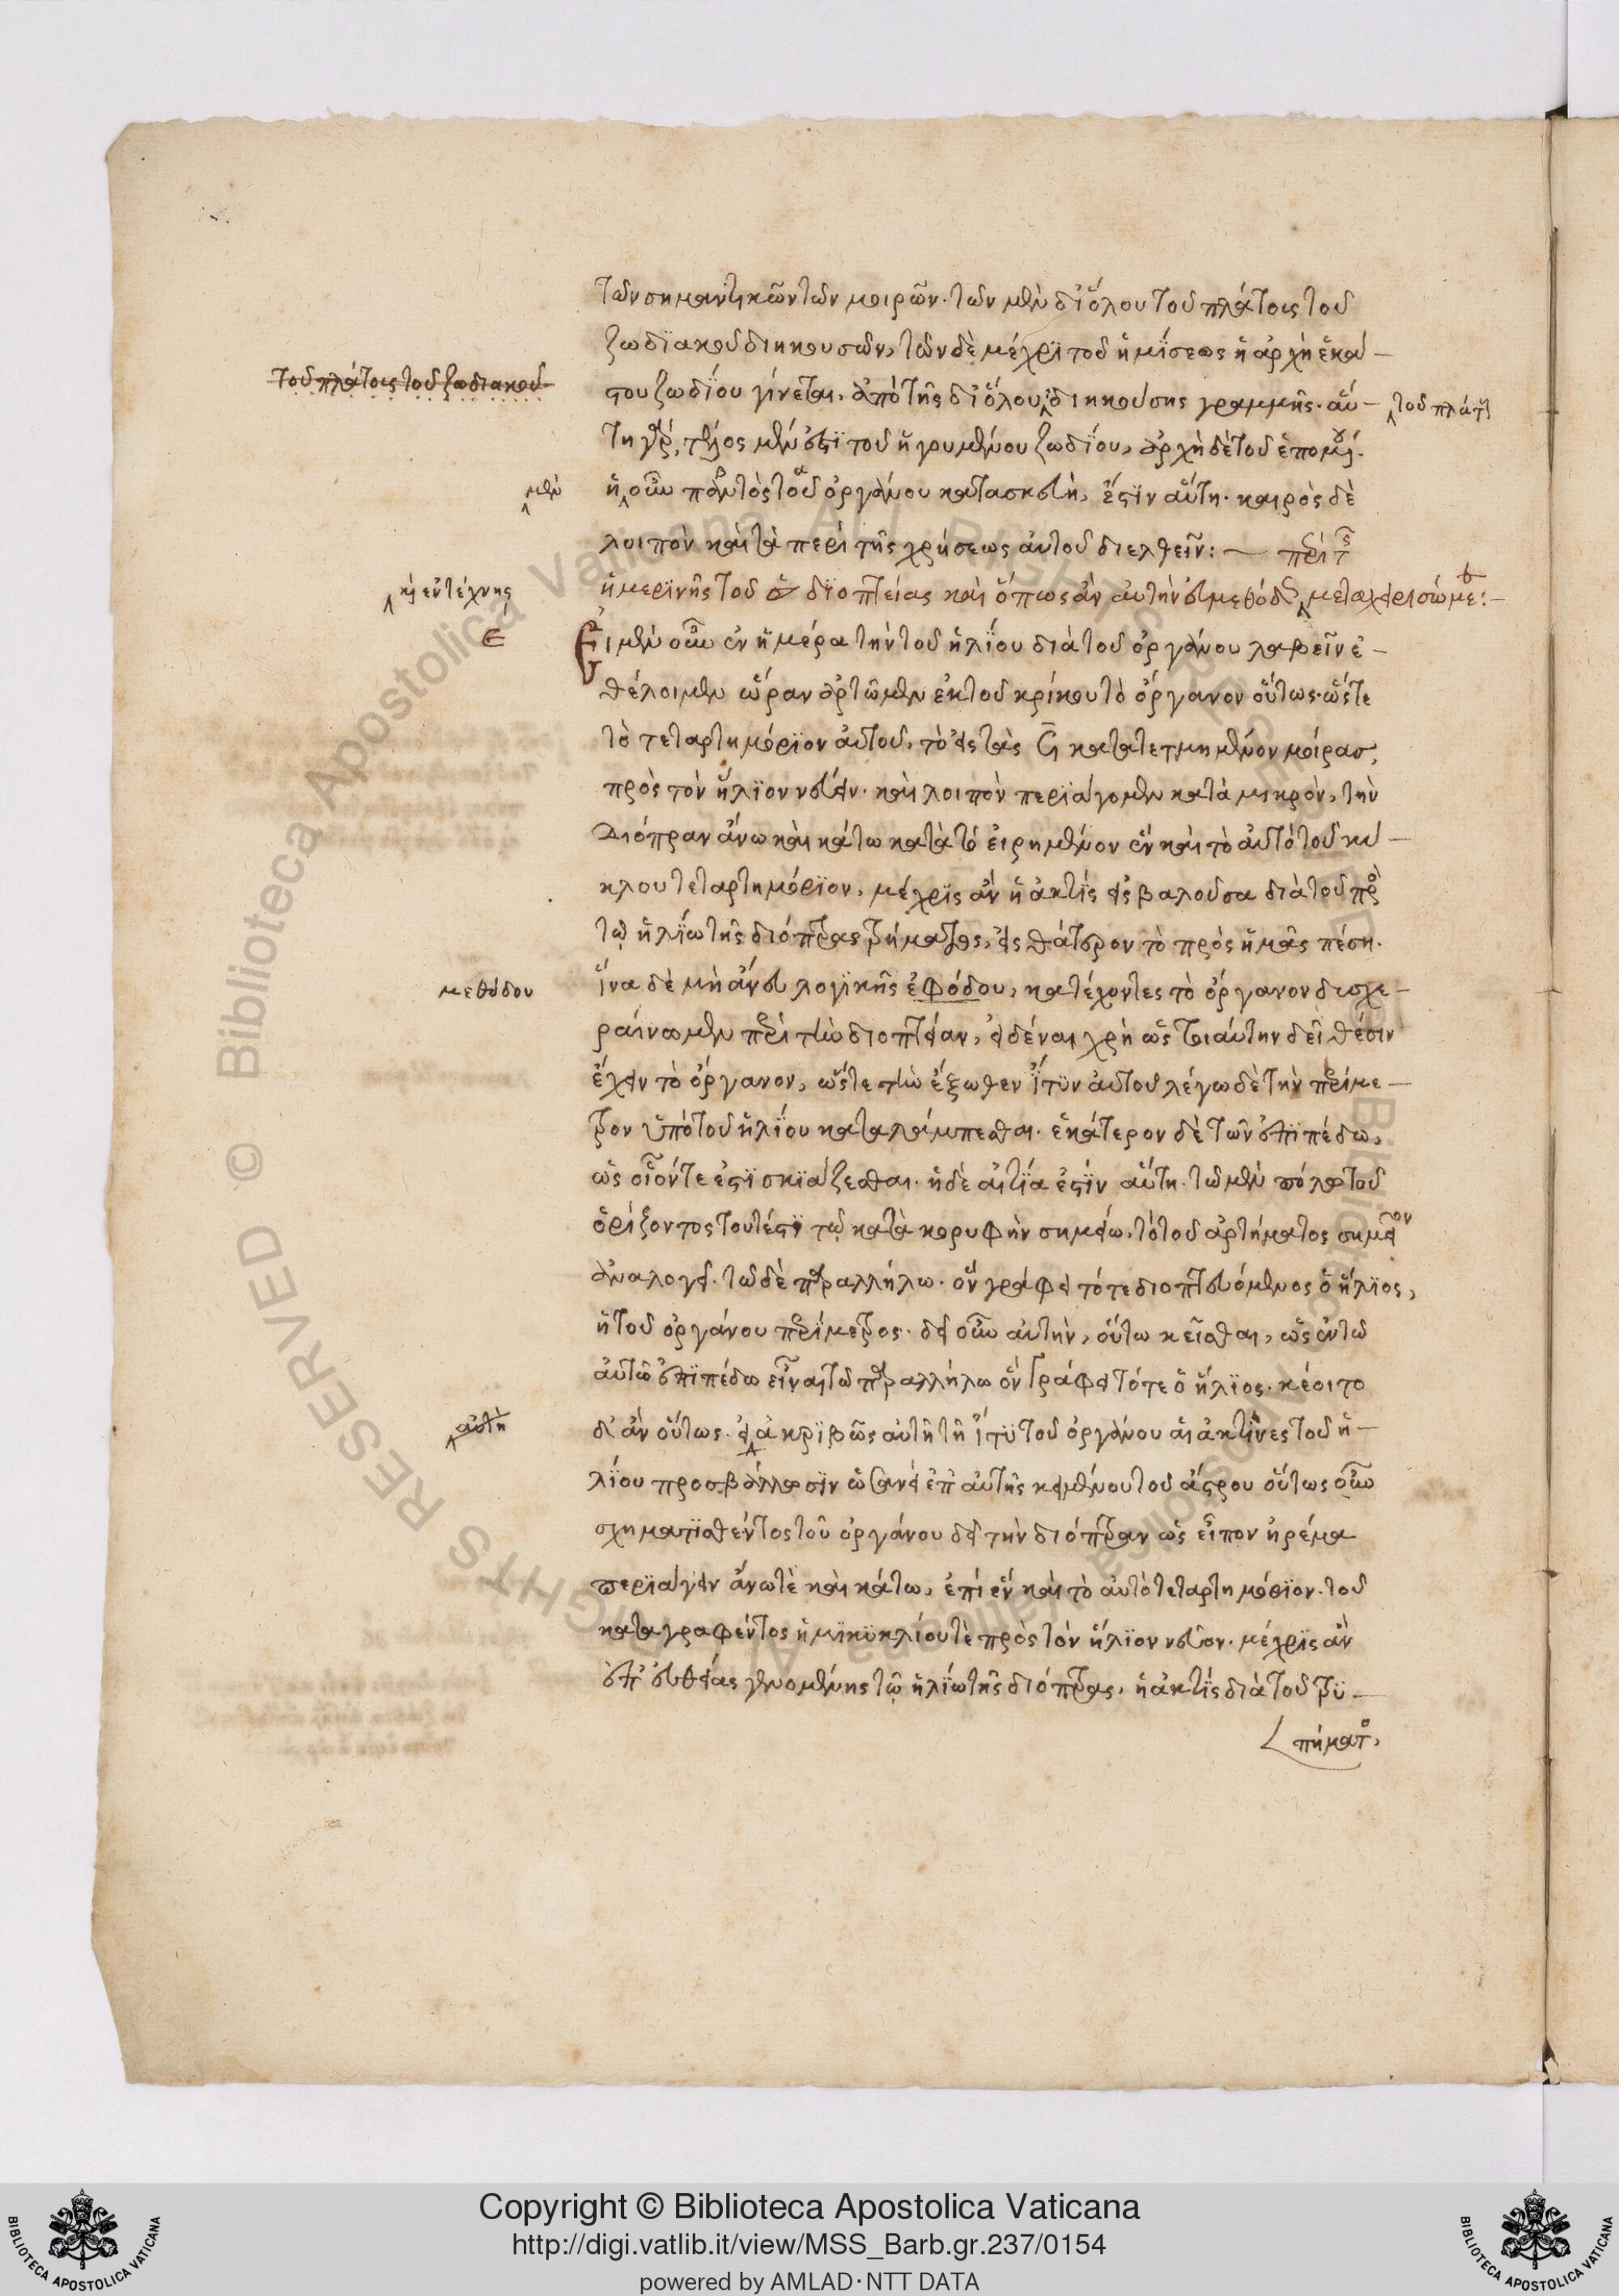 τῶν σημαντικῶν τῶν μοιρῶν. τῶν μὲν δι' ὅλου τοῦ πλάτους τοῦ
ζωδϊακοῦ διηκουσῶν, τῶν δὲ μέχρϊ τοῦ ἡμΐσεως ἡ ἀρχὴ ἑκά-
τοῦ πλάτους τοῦ ζωδιακοῦ
στου ζωδΐου γίνεται, ἀπὸ τῆς δι' ὅλου διηκούσης γραμμῆς. αὕ-
τοῦ πλάτους
τη γὰρ, τέλος μὲν ἐστϊ τοῦ ἡγουμένου ζωδΐου, ἀρχὴ δὲ τοῦ ἑπομένου.
μὲν
ἡ οὖν παντὸς τοῦ ὀργάνου κατασκευὴ, ἐστϊν αὕτη. καιρὸς δὲ
λοιπὸν καὶ τὰ περὶ τῆς χρήσεως αὐτοῦ διελθεῖν: — περὶ τῆς
καὶ ἐντέχνως
ἡμερϊνῆς τοῦ ☉ δϊοπτείας καὶ ὅπως ἂν αὐτὴν εὐμεθόδως μεταχειρισώμεθα: —
ε
Εἰ μὲν οὖν ἐν ἡμέρα τὴν τοῦ ἡλΐου διὰ τοῦ ὀργάνου λαβεῖν ἐ-
θέλοιμεν ὥραν ἀρτῶμεν ἐκ τοῦ κρίκου τὸ ὄργανον οὕτως. ὥστε
τὸ τεταρτημόρϊον αὐτοῦ, τὸ εἰς τὰς Ϟ κατατετμημένον μοίρας,
πρὸς τὸν ἥλϊον νεύειν. καὶ λοιπὸν περϊάγομεν κατὰ μικρὸν, τὴν
διόπραν ἄνω καὶ κάτω κατὰ τὸ εἰρημένον ἓν καὶ τὸ αὐτὸ τοῦ κύ-
κλου τεταρτημόρϊον, μέχρϊς ἂν ἡ ἀκτὶς εἰσβαλοῦσα διὰ τοῦ πρὸς
τῷ ἡλΐω τῆς διόπτρας τρήματος, εἰς θάτερον τὸ πρὸς ἡμᾶς πέση.
μεθόδου
ἵνα δὲ μὴ ἄνευ λογϊκῆς ἐφόδου, κατέχοντες τὸ ὄργανον δυσχε-
ραίνωμεν περὶ τὴν διοπτείαν, εἰδέναι χρὴ ὡς τοιαύτην δεῖ θέσιν
ἔχειν τὸ ὄργανον, ὥστε τὴν ἔξωθεν ἴτϋν αὐτοῦ λέγω δὲ τὴν περίμε-
τρον ὑπὸ τοῦ ἡλΐου καταλάμπεσθαι. ἑκάτερον δὲ τῶν ἐπϊπέδων,
ὡς οἷόν τε ἐστϊ σκϊάζεσθαι. ἡ δὲ αἰτΐα ἐστΐν αὕτη. τῶ μὲν πόλω τοῦ
ὁρίζοντος τουτέστϊ τῷ κατὰ κορυφὴν σημείω, τὸ τοῦ ἀρτήματος σημεῖον
ἀναλογεῖ. τῶ δὲ παραλλήλω. ὃν γράφει τότε διοπτευόμενος ὁ ἥλϊος,
ἡ τοῦ ὀργάνου περίμετρος. δεῖ οὖν αὐτὴν, οὕτω κεῖσθαι, ὡς ἐν τῶ
αὐτῶ ἐπϊπέδω εἶναι τῶ παραλλήλω ὃν γράφει τότε ὁ ἥλϊος. κέοιτο
αὐτὴ
δ' ἂν οὕτως. εἰ ἀκρϊβῶς αὐτῆ τῆ ἴτϋϊ τοῦ ὀργάνου αἱ ἀκτῖνες τοῦ ἡ-
λΐου προσβάλλωσϊν ὡσανεὶ ἐπ' αὐτῆς κειμένου τοῦ ἄστρου οὕτως οὖν
σχηματϊσθέντος τοῦ ὀργάνου δεῖ τὴν διόπτραν ὡς εἶπον ἠρέμα
περϊάγειν ἄνω τὲ καὶ κάτω, ἐπὶ ἓν καὶ τὸ αὐτὸ τεταρτημόρϊον. τοῦ
καταγραφέντος ἡμϊκϋκλίου τὲ πρὸς τὸν ἥλϊον νεῦον. μέχρϊς ἂν
ἐπ' εὐθείας γενομένης τῷ ἡλίω τῆς διόπτρας, ἡ ἀκτὶς διὰ τοῦ τρϋ-
πήματος
Copyright © Biblioteca Apostolica Vaticana
http://digi.vatlib.it/view/MSS_Barb.gr.237/0154
powered by AMLAD·NTT DATA
BIBLIOTECA APOSTOLICA VATICANA
BIBLIOTECA APOSTOLICA VATICANA